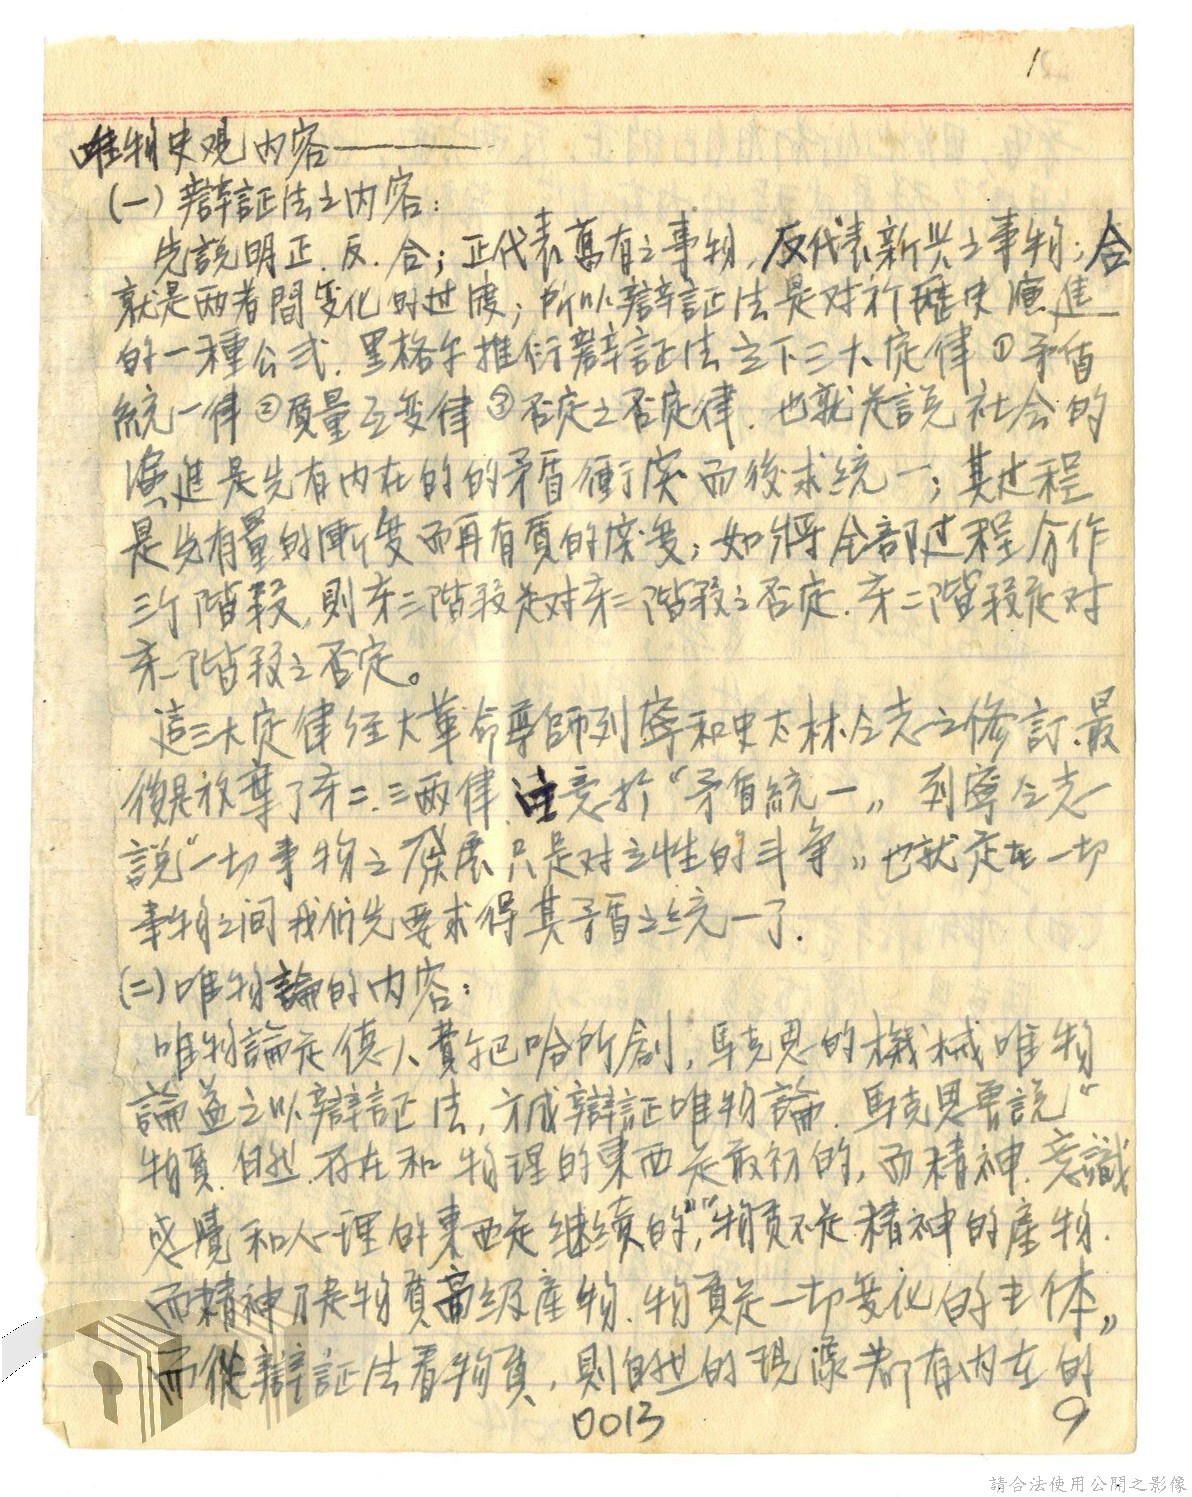 1
唯物史观内容———
(一)辯証法之内容:
先説明正.反.合;正代表舊有之事物,反代表新兴之事物;合
就是两者間变化的过渡;所以辯証法是对於歷史演進
的一種公式.黑格尔推衍辯証法立下三大定律①矛盾
統一律②质量互变律③否定之否定律.也就是説社会的
演進是先有内在的的矛盾衝突而後求統一;其过程
是先有量的漸变而再有質的突变;如将全部过程分作
三个階段,則第三階段是对第二階段之否定.第二階段是对
第一階段之否定。
這三大定律经大革命導師列寧和史太林仝志之修訂.最
後是放棄了第二.三两律.注意於“矛盾統一〃列寧仝志
說“一切事物之發展只是对立性的斗争〃也就是在一切
事物之间我們先要求得其矛盾之統一了.
(二)唯物論的内容:
唯物論是德人費尔巴哈所創,馬克思的機械唯物
論益之以辯証法,而成辯証唯物論.馬克思曾説“
物質.自然.存在和物理的東西是最初的,而精神.意識
感覺和心理的東西是继续的”,“物質不是精神的產物.
而精神只是物質高级產物.物質是一切变化的主体〃
而從辯証法看物質,則自然的現象都有内在的
0013
9
請合法使用公開之影像